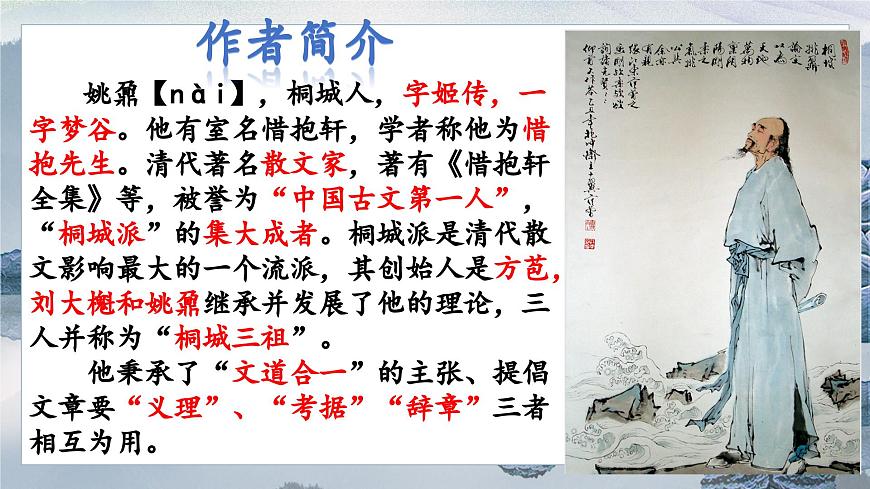 作者简介
姚鼐【nài】，桐城人，字姬传，一
字梦谷。他有室名惜抱轩，学者称他为惜
抱先生。清代著名散文家，著有《惜抱轩
全集》等，被誉为“中国古文第一人”，
“桐城派”的集大成者。桐城派是清代散
文影响最大的一个流派，其创始人是方苞，
刘大櫆和姚鼐继承并发展了他的理论，三
人并称为“桐城三祖”。
他秉承了“文道合一”的主张、提倡
文章要“义理”、“考据”“辞章”三者
相互为用。
桐城
姚鼐
论文
以为
天地